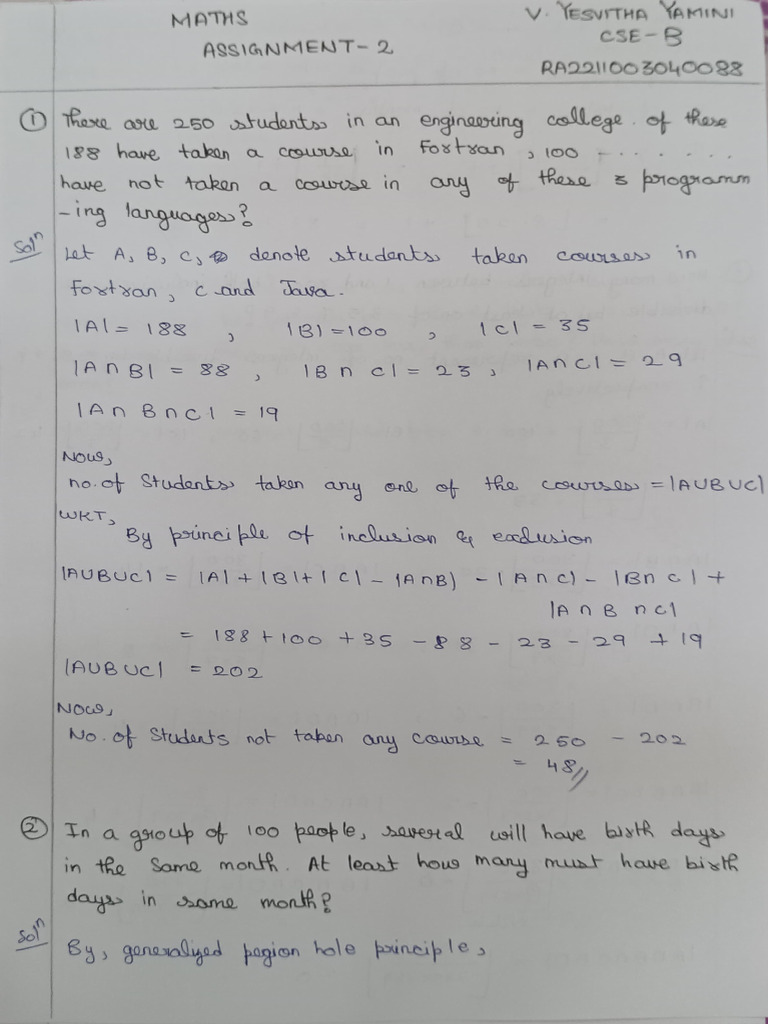 MATHS
ASSIGNMENT-2
V. YESVITHA YAMINI
CSE-B
RA2211003040088
① There are 250 students in an engineering college. of these
188 have taken a course in Fortran, 100 - . . . . . . .
have not taken a course in any of these 3 programm
-ing languages?
Solⁿ
Let A, B, C, denote students taken courses in
Fortran, C and Java.
|A| = 188 , |B| = 100 , |C| = 35
|A ∩ B| = 88 , |B ∩ C| = 23 , |A ∩ C| = 29
|A ∩ B ∩ C| = 19
Now,
no. of Students taken any one of the courses = |A∪B∪C|
WKT,
By principle of inclusion & exclusion
|A∪B∪C| = |A| + |B| + |C| - |A∩B| - |A∩C| - |B∩C| +
|A ∩ B ∩ C|
= 188 + 100 + 35 - 88 - 23 - 29 + 19
|A∪B∪C| = 202
Now,
No. of Students not taken any course = 250 - 202
= 48//
② In a group of 100 people, several will have birth days
in the Same month. At least how many must have birth
days in same month?
Solⁿ
By, generalized pegion hole principle,